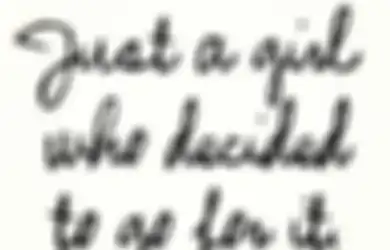 Just a girl
who decided
to go for it.